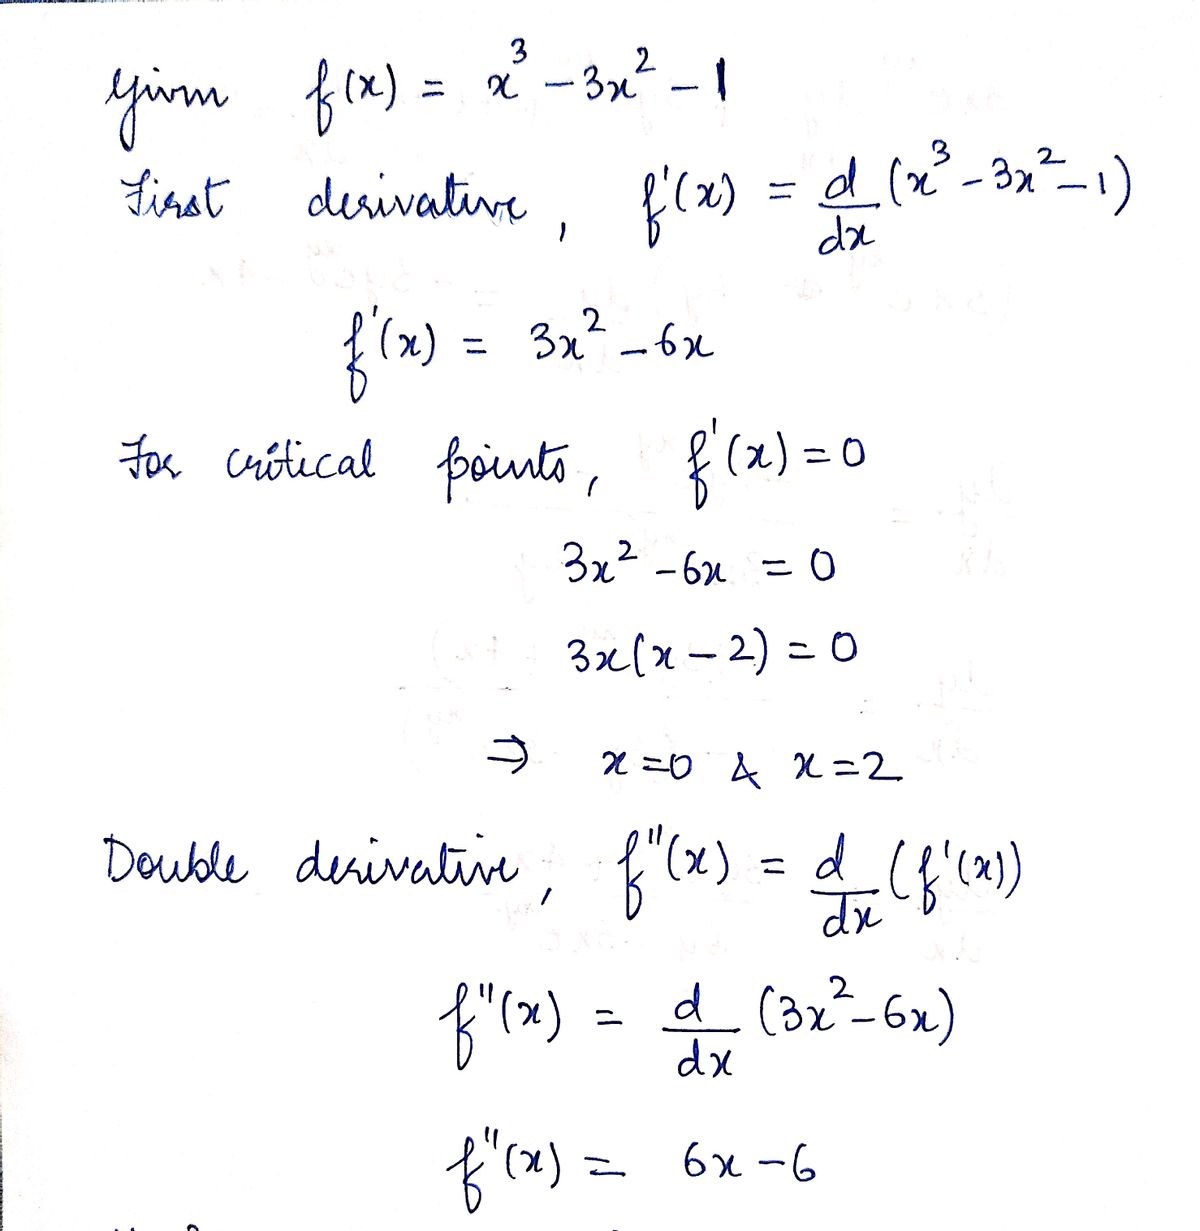 Given f(x) = x³ - 3x² - 1
First derivative, f'(x) = d/dx (x³ - 3x² - 1)
f'(x) = 3x² - 6x
For critical points, f'(x) = 0
3x² - 6x = 0
3x(x - 2) = 0
⇒ x = 0 & x = 2
Double derivative, f"(x) = d/dx (f'(x))
f"(x) = d/dx (3x² - 6x)
f"(x) = 6x - 6